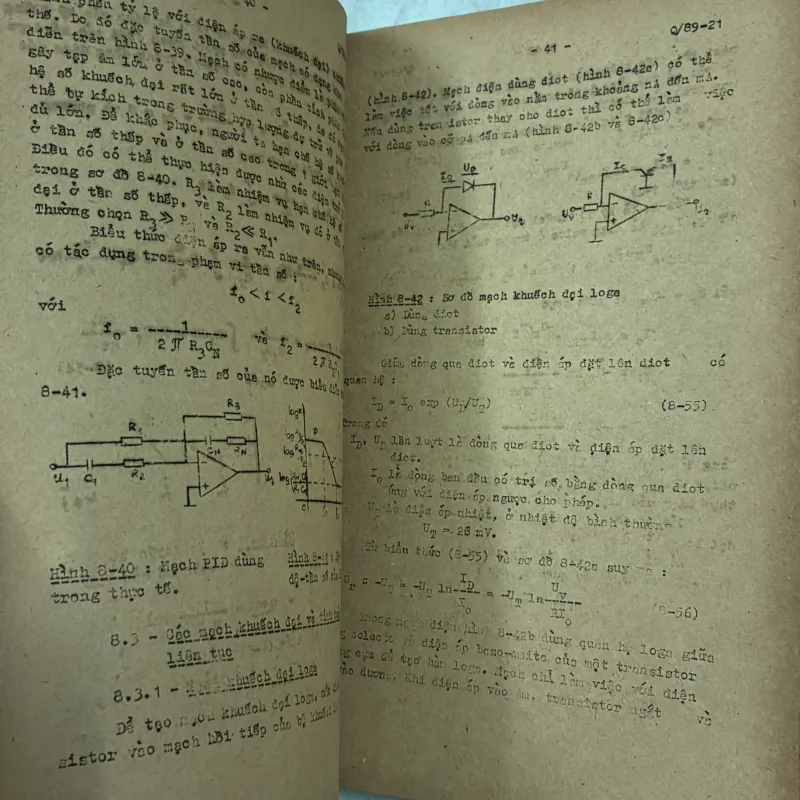 - 40 -
phần tỷ lệ với điện áp ra (khuếch đại)
thế. Do đó đặc tuyến tần số của mạch có dạng
diễn trên hình 8-39. Mạch có nhược điểm là
gây tạp âm lớn ở tần số cao, còn phần tích phân
hệ số khuếch đại rất lớn ở tần số thấp, do đó
thể tự kích trong trường hợp lượng dự trữ về
đủ lớn. Để khắc phục, người ta hạn chế hệ số
ở tần số thấp và ở tần số cao trong 1 giới
Điều đó có thể thực hiện được nhờ các điện trở
trong sơ đồ 8-40. R3 làm nhiệm vụ hạn chế hệ số
đại ở tần số thấp, và R2 làm nhiệm vụ đó ở tần
Thường chọn R3 ≫ R1 và R2 ≪ R1.
Biểu thức điện áp ra vẫn như trên, nhưng
có tác dụng trong phạm vi tần số :
fo < f < f2
với
fo = 1 / 2 π R3CN và f2 = 1 / 2 π R
Đặc tuyến tần số của nó được biểu diễn
8-41.
R3
R1
CN RN
U1 C1 R2 U2
Hình 8-40 : Mạch PID dùng
trong thực tế.
Hình 8-41 :
độ-tần số của
8.3 - Các mạch khuếch đại và tính
liên tục
8.3.1 - Mạch khuếch đại loga
Để tạo mạch khuếch đại loga,
sistor vào mạch hồi tiếp của bộ khuếch
Q/89-21
- 41 -
(hình 8-42). Mạch điện dùng diot (hình 8-42a) có thể
làm việc tốt với dòng vào nằm trong khoảng nA đến mA.
Nếu dùng transistor thay cho diot thì có thể làm việc
với dòng vào cỡ pA đến mA (hình 8-42b và 8-42c)
UD
ID
R
UV
Ur
IC
R
UV
Hình 8-42 : Sơ đồ mạch khuếch đại loga
a) Dùng diot
b) Dùng transistor
Giữa dòng qua diot và điện áp đặt lên diot có
quan hệ :
ID = Io exp (UD/UT) (8-55)
trong đó
ID, UD lần lượt là dòng qua diot và điện áp đặt lên
diot.
Io là dòng ban đầu có trị số bằng dòng qua diot
ứng với điện áp ngược cho phép.
UT là điện áp nhiệt, ở nhiệt độ bình thường
UT = 26 mV.
Từ biểu thức (8-55) và sơ đồ 8-42a suy ra :
Ur = -UD = -UT ln ID / Io = -UT ln UV / RIo (8-56)
Trong mạch điện hình 8-42b dùng quan hệ loga giữa
dòng colectơ và điện áp bazo-emito của một transistor
để tạo hàm loga. Mạch chỉ làm việc với điện
áp vào dương. Khi điện áp vào âm, transistor ngắt và